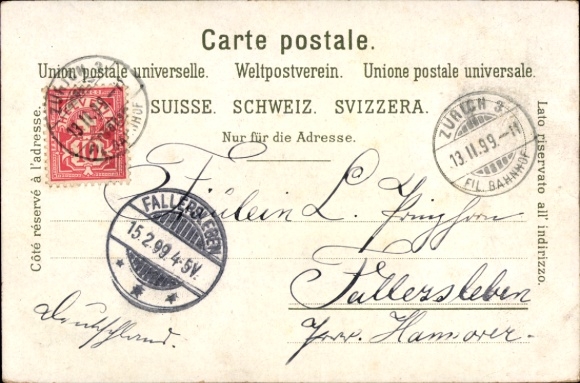 Carte postale.
Union postale universelle. Weltpostverein. Unione postale universale.
SUISSE. SCHWEIZ. SVIZZERA.
Nur für die Adresse.
Côté réservé à l'adresse.
Lato riservato all' indirizzo.
ZÜRICH 3
13.II.99.-11
FIL. BAHNHOF
10
FALLERSLEBEN
15.2.99.4-5V.
Fräulein L.
Fallersleben
Prov. Hannover.
Deutschland.